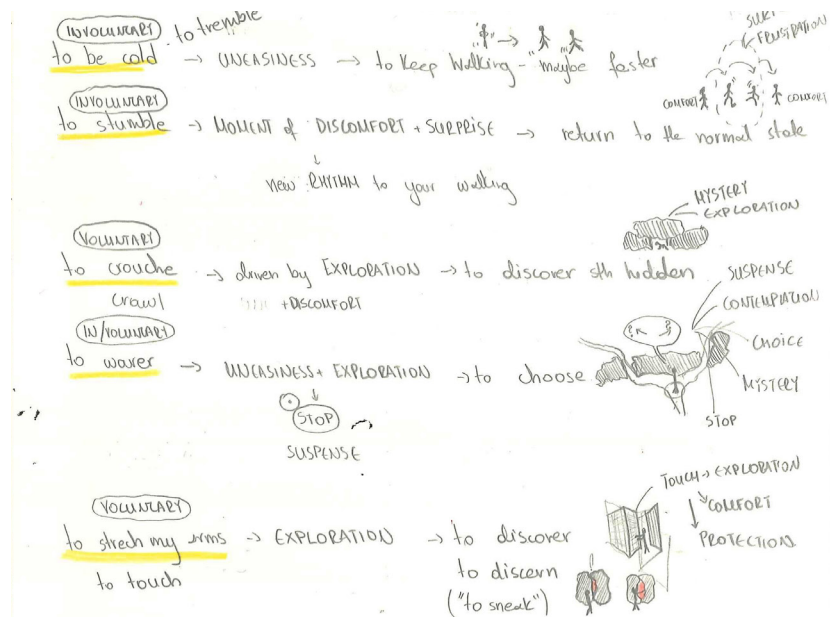 INVOLUNTARY · to tremble
to be cold → UNEASINESS → to keep walking - maybe faster
FRUSTRATION
COMFORT COMFORT
INVOLUNTARY
to stumble → MOMENT of DISCOMFORT + SURPRISE → return to the normal state
new RHYTHM to your walking
MYSTERY
EXPLORATION
VOLUNTARY
to crouche → driven by EXPLORATION → to discover sth hidden
crawl + DISCOMFORT
SUSPENSE
CONTEMPLATION
CHOICE
MYSTERY
STOP
IN/VOLUNTARY
to waver → UNEASINESS + EXPLORATION → to choose
STOP
SUSPENSE
TOUCH → EXPLORATION
COMFORT
PROTECTION
VOLUNTARY
to strech my arms → EXPLORATION → to discover
to touch to discern
("to sneak")